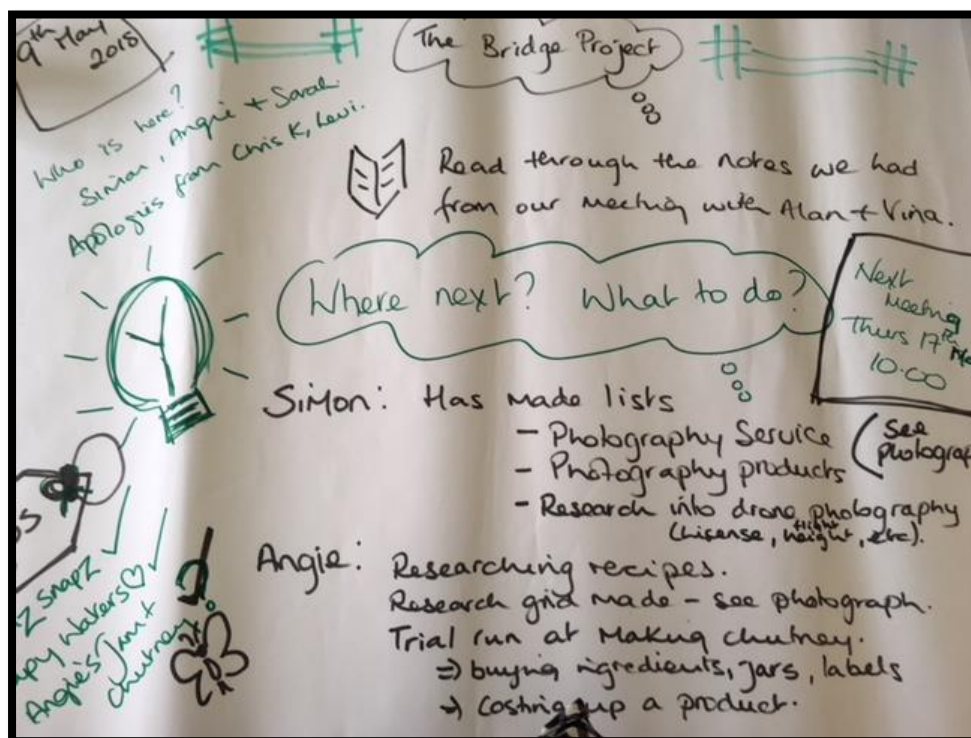 9th May
2018
The Bridge Project
Who is here?
Simon, Angie + Sarah
Apologies from Chris K, Levi.
Read through the notes we had
from our meeting with Alan + Vina.
Where next? What to do?
Next
Meeting
Thurs 17th
10.00
Simon: Has made lists
- Photography Service
- Photography products
(see
photograph
- Research into drone photography
(Lisense, flight height, etc).
Angie: Researching recipes.
Research grid made - see photograph.
Trial run at making chutney.
⇒ buying ingredients, jars, labels
→ Costing up a product.
snapz
Angie's Jam +
chutney